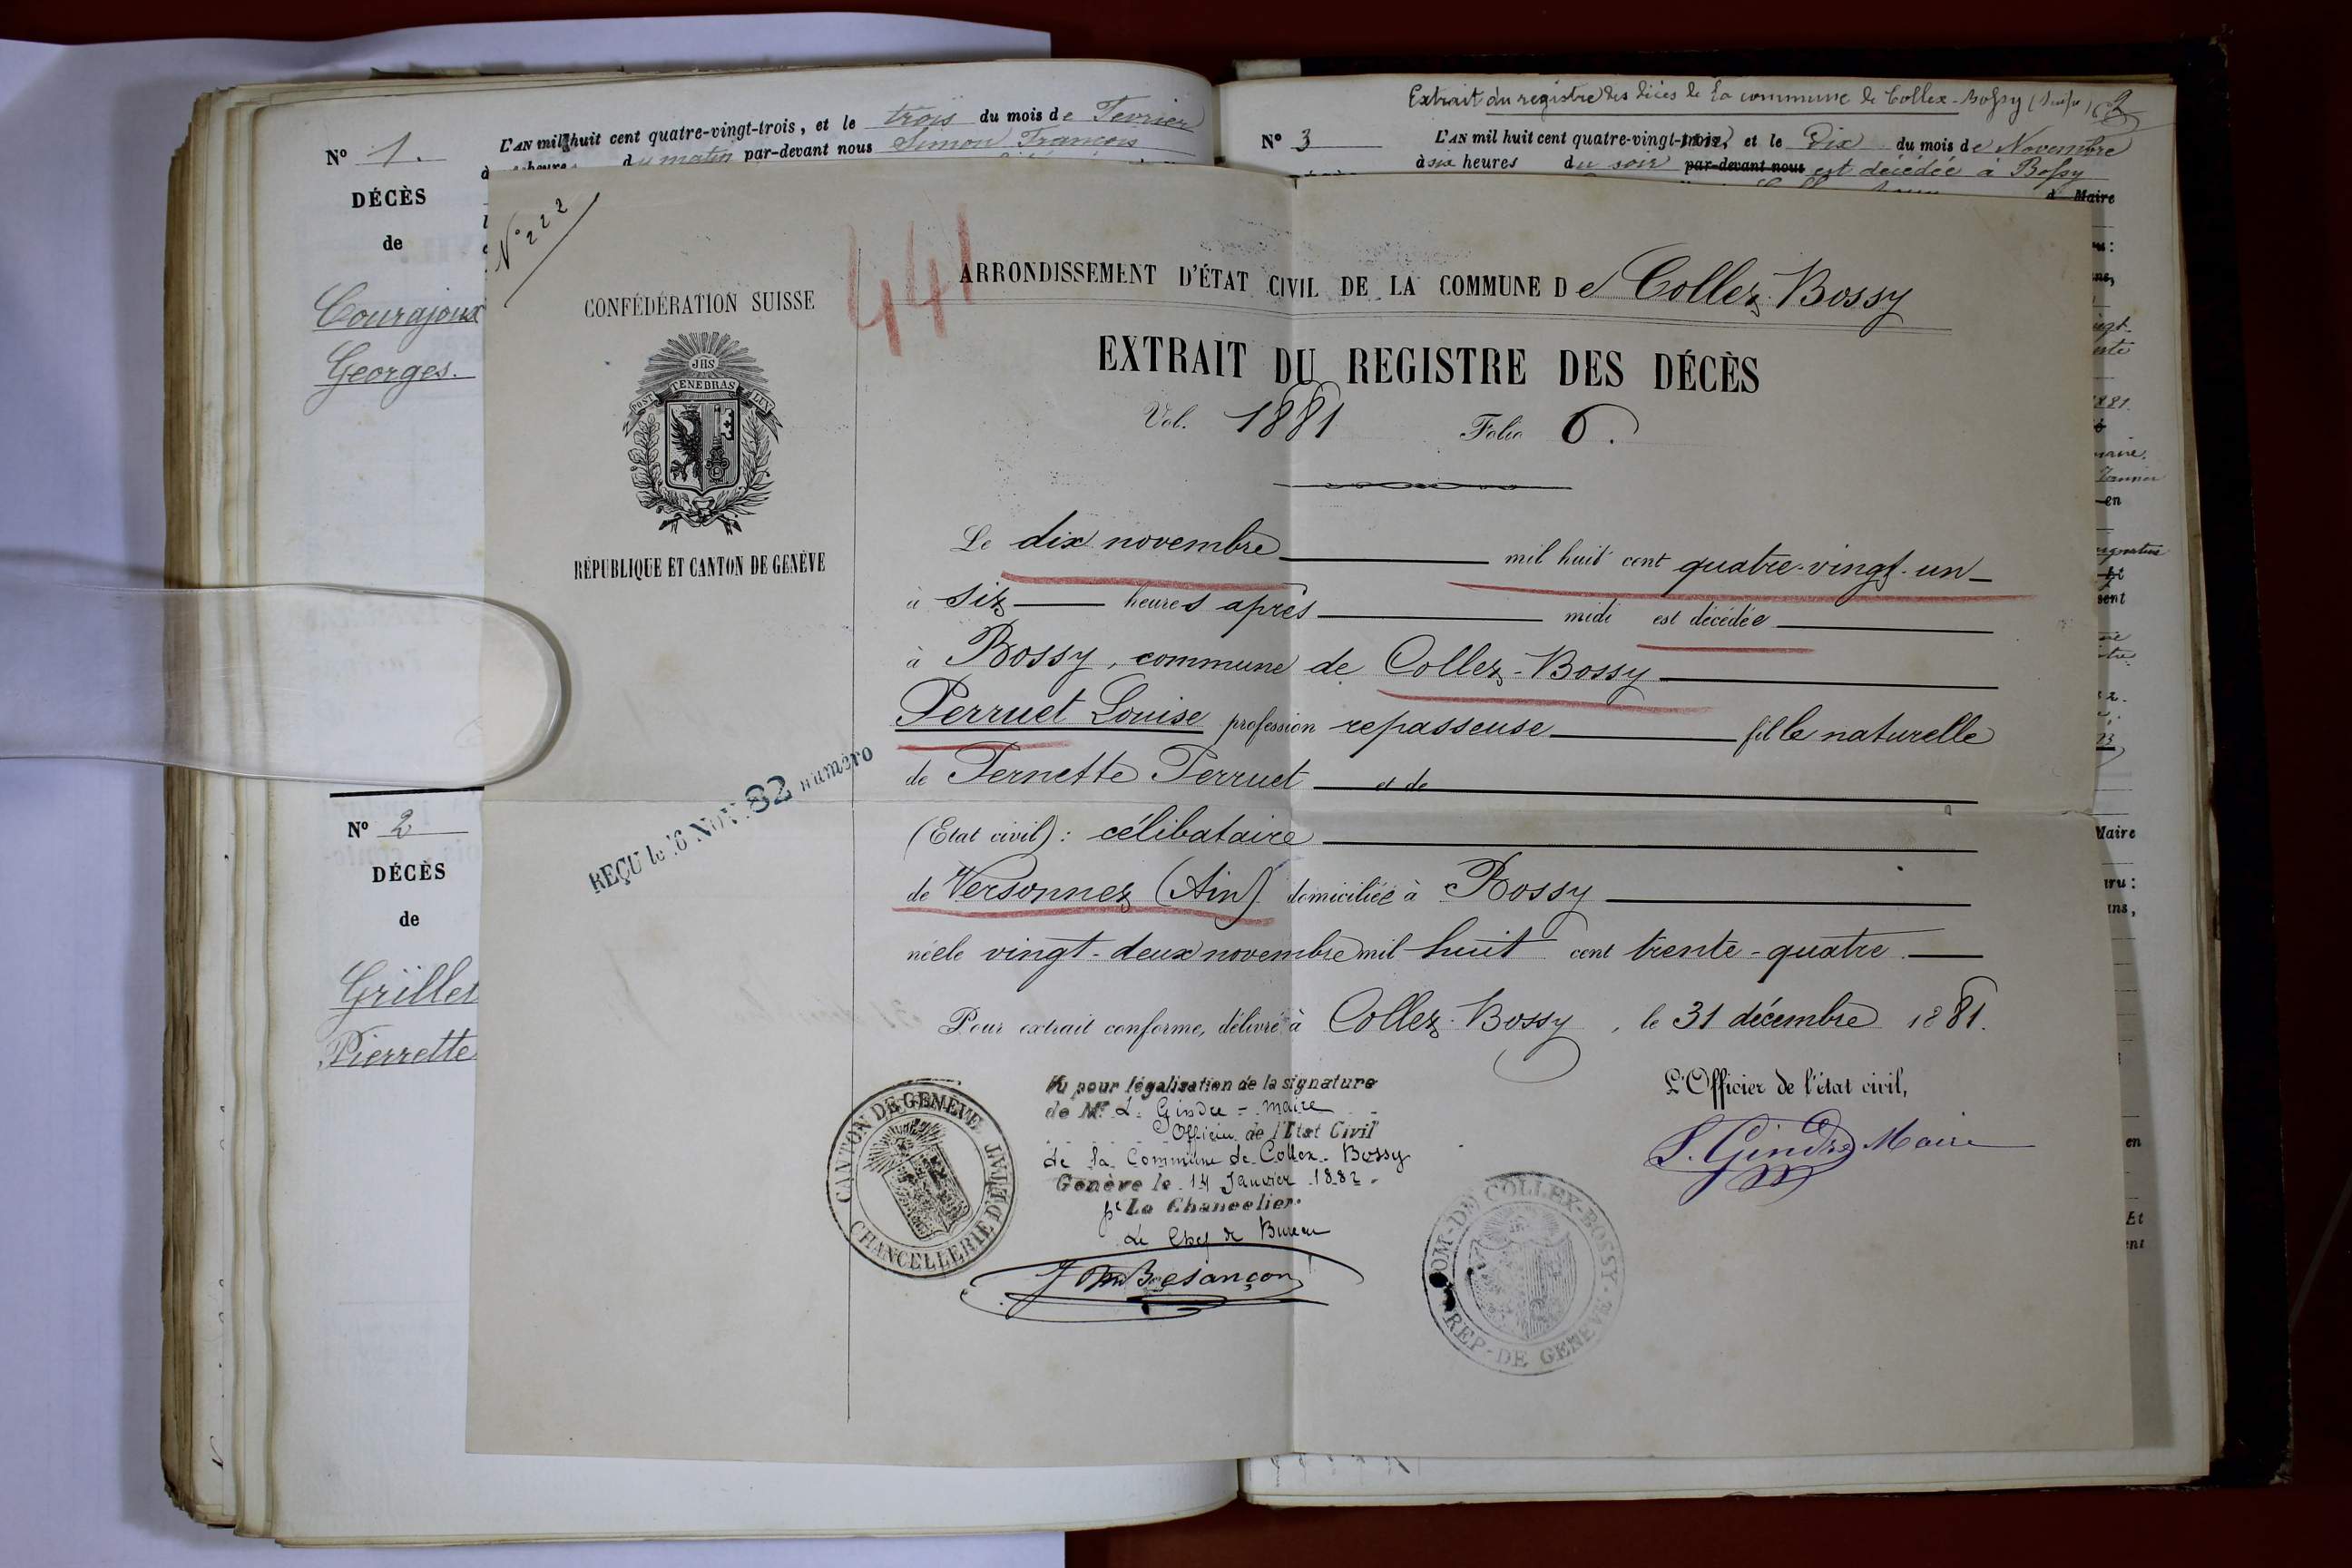 Nº 1.
DÉCÈS
de
Courajoux
Georges.
L'AN mil huit cent quatre-vingt-trois, et le trois du mois de Fevrier
heure du matin par-devant nous Simon François
Nº 2
DÉCÈS
de
Grillet
Pierrette
Extrait du registre des décès de la commune de Collex-Bossy (Suisse)
Nº 3
L'AN mil huit cent quatre-vingt-trois, et le Dix du mois de Novembre
à six heures du soir par-devant nous est décédée à Bossy
d Maire
Nº 222
441
CONFÉDÉRATION SUISSE
JHS
POST TENEBRAS LUX
RÉPUBLIQUE ET CANTON DE GENÈVE
REÇU le 16 NOV. 82 numéro
ARRONDISSEMENT D'ÉTAT CIVIL DE LA COMMUNE De Collex-Bossy
EXTRAIT DU REGISTRE DES DÉCÈS
Vol. 1881 Folio 6.
Le dix novembre mil huit cent quatre-vingt-un
à six heures après midi est décédée
à Bossy, commune de Collex-Bossy
Perruet Louise profession repasseuse fille naturelle
de Pernette Perruet et de
(Etat civil): célibataire
de Versonnex (Ain) domiciliée à Bossy
née le vingt-deux novembre mil huit cent trente-quatre
Pour extrait conforme, délivré à Collex-Bossy, le 31 décembre 1881.
L'Officier de l'état civil,
L. Gindre Maire
Vu pour légalisation de la signature
de Mr L. Gindre - maire
Officier de l'Etat Civil
de la Commune de Collex-Bossy
Genève le 14 Janvier 1882.
pr Le Chancelier.
Le Chef de Bureau
John Besançon
CANTON DE GENEVE
CHANCELLERIE D'ETAT
COM-DE COLLEX-BOSSY
REP-DE GENEVE